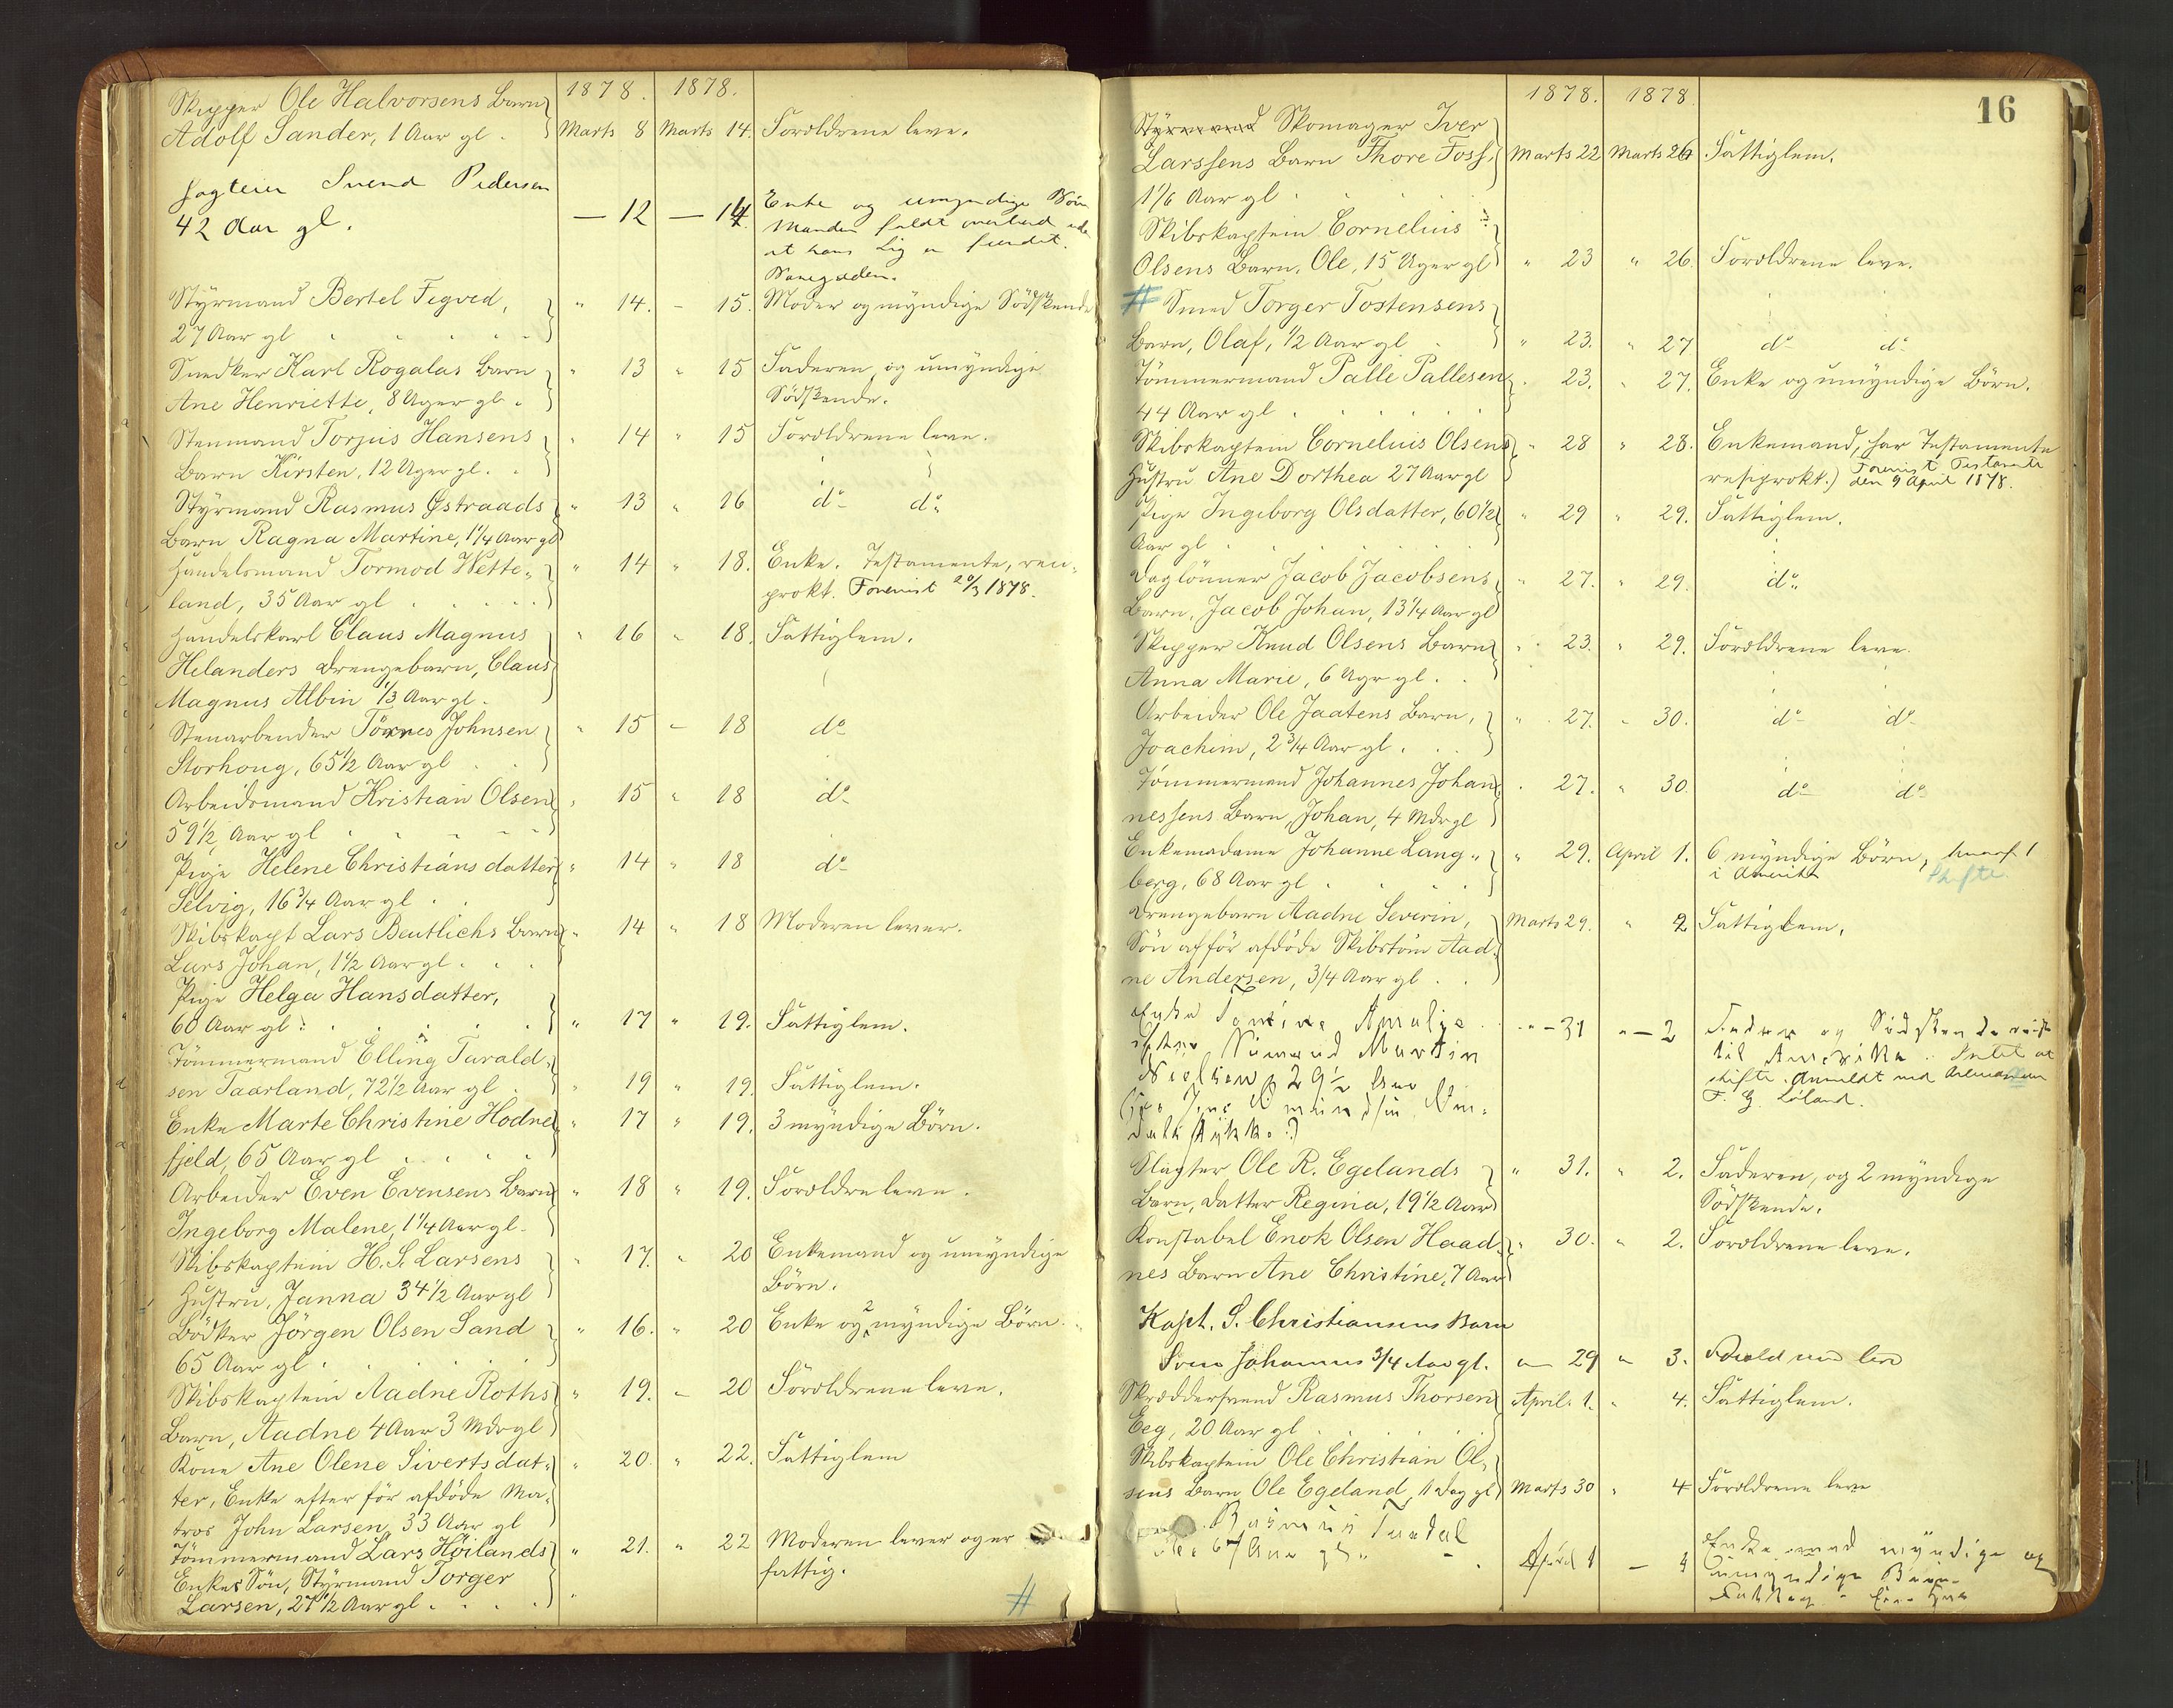 1878. 1878.
Skipper Ole Halvorsens Barn
Adolf Sander, 1 Aar gl. Marts 8 Marts 14. Forældrene leve.
Jagteier Svend Pedersen
42 Aar gl. — 12 — 14. Enke og umyndige Børn
Manden faldt overbord
at hans Lig er fundet.
Styrmand Bertel Tegved, " 14. - 15. Moder og myndige Södskende
27 Aar gl
Snedker Karl Rogalas Barn " 13 " 15 Faderen og umyndige
Ane Henriette, 8 Uger gl. Södskende.
Stenmand Torjus Hansens " 14 " 15 Forældrene leve.
Barn Kirsten, 12 Uger gl.
Styrmand Rasmus Østraads " 13 " 16 do do
Barn Ragna Martine, 1 1/4 Aar gl
Handelsmand Tormod Wette- " 14 " 18. Enke. Testamente, resi-
land, 35 Aar gl prokt. 20/3 1878.
Handelskarl Claus Magnus " 16 " 18. Fattiglem.
Helanders Drengebarn, Claus
Magnus Albin 1/3 Aar gl.
Stenarbeider Törres Johnsen " 15 - 18 do
Storhoug, 65 1/2 Aar gl
Arbeidsmand Kristian Olsen " 15 " 18 do
59 1/2 Aar gl
Pige Helene Christiansdatter " 14 " 18 do
Selvig, 16 3/4 Aar gl
Skibskapt Lars Bentlichs Barn " 14 " 18 Moderen lever.
Lars Johan, 1 1/2 Aar gl.
Pige Helga Hansdatter,
60 Aar gl. " 17 " 19. Fattiglem.
Tömmermand Elling Tarald-
sen Taarland, 72 1/2 Aar gl " 19 " 19. Fattiglem.
Enke Marte Christine Hodne- " 17 " 19. 3 myndige Börn.
fjeld, 65 Aar gl
Arbeider Even Evensens Barn " 18 " 19. Forældre leve.
Ingeborg Malene, 1 1/4 Aar gl.
Skibskaptein H. S. Larsens " 17. " 20 Enkemand og umyndige
Hustru, Janna 34 1/2 Aar gl Börn.
Bödker Jörgen Olsen Sand " 16. " 20 Enke og 2 myndige Börn.
65 Aar gl.
Skibskaptein Aadne Roths " 19. - 20 Forældrene leve.
Barn, Aadne 4 Aar 3 Mdr gl
Kone Ane Olene Sivertsdat- " 20. " 22. Fattiglem
ter, Enke efter för afdöde Ma-
tros John Larsen, 33 Aar gl
Tömmermand Lars Höilands " 21. " 22 Moderen lever og er
Enkes Sön, Styrmand Torger fattig.
Larsen, 27 1/2 Aar gl. #
1878. 1878. 16
Styrmand Skomager Iver
Larssens Barn Thore Foss, Marts 22 Marts 26 Fattiglem.
1 1/6 Aar gl
Skibskaptein Cornelius
Olsens Barn, Ole, 15 Uger gl " 23 " 26. Forældrene leve.
# Smed Torger Tostensens
Barn, Olaf, 1/2 Aar gl " 23. " 27 do do
Tömmermand Palle Pallesen " 23. " 27. Enke og umyndige Börn.
44 Aar gl
Skibskaptein Cornelius Olsens " 28 " 28. Enkemand, har Testamente
Hustru Ane Dorthea 27 Aar gl resiprokt.) Forevist Testamente
den 9 April 1878.
Pige Ingeborg Olsdatter, 60 1/2 " 29 " 29. Fattiglem.
Aar gl
Daglönner Jacob Jacobsens " 27. " 29. do
Barn, Jacob Johan, 13 1/4 Aar gl
Skipper Knud Olsens Barn " 23. " 29. Forældrene leve.
Anna Marie, 6 Ugr gl.
Arbeider Ole Jaatens Barn, " 27. " 30. do do
Joachim, 2 3/4 Aar gl.
Tömmermand Johannes Johan- " 27. " 30. do do
nessens Barn, Johan, 4 Mdr gl
Enkemadame Johanne Lang- " 29. April 1. 6 myndige Börn, hvoraf 1
berg, 68 Aar gl i Amerika Skifte.
Drengebarn Aadne Severin, Marts 29. " 2 Fattiglem.
Sön af för afdöde Skibstöm Aad-
ne Andersen, 3/4 Aar gl
Amalie " — 31 " — 2 og Södskende
Martin til Amerika. Intet at
Nielsen 29 1/2 Aar skifte. Anmeldt ved
F. G. Loland.
Slagter Ole R. Egelands " 31. " 2. Faderen, og 2 myndige
Barn, Datter Regina, 19 1/2 Aar Södskende.
Konstabel Enok Olsen Haad- " 30. " 2. Forældrene leve.
nes Barn Ane Christine, 7 Aar
Kapt. S. Christiansens Barn
Johannes 3/4 Aar gl. " 29 " 3.
Skræddersvend Rasmus Thorsen April 1. " 4. Fattiglem.
Eeg, 20 Aar gl
Skibskaptein Ole Christian Ol-
sens Barn Ole Egeland, 11 Dag gl Marts 30 " 4 Forældrene leve
Rasmus
67 Aar gl. April 1 — 4 Enke med myndige og
umyndige Börn